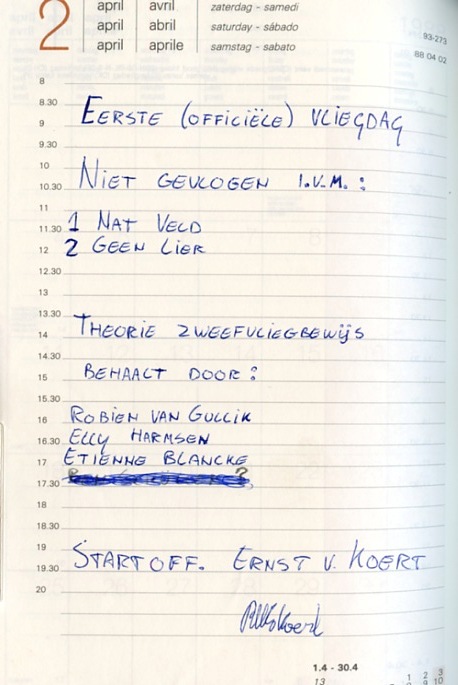 2
april avril zaterdag - samedi
april abril saturday - sábado
april aprile samstag - sabato
93-273
88 04 02
8
8.30
EERSTE (OFFICIËLE) VLIEGDAG
9
9.30
10
NIET GEVLOGEN I.V.M. :
10.30
11
11.30 1 NAT VELD
12 2 GEEN LIER
12.30
13
13.30
THEORIE ZWEEFVLIEGBEWIJS
14
14.30
15 BEHAALT DOOR :
15.30
16 ROBIEN VAN GULLIK
16.30 ELLY HARMSEN
17 ETIENNE BLANCKE
17.30
18
18.30
19
STARTOFF. ERNST V. KOERT
19.30
20
1.4 - 30.4
13 1 2 3
8 9 10